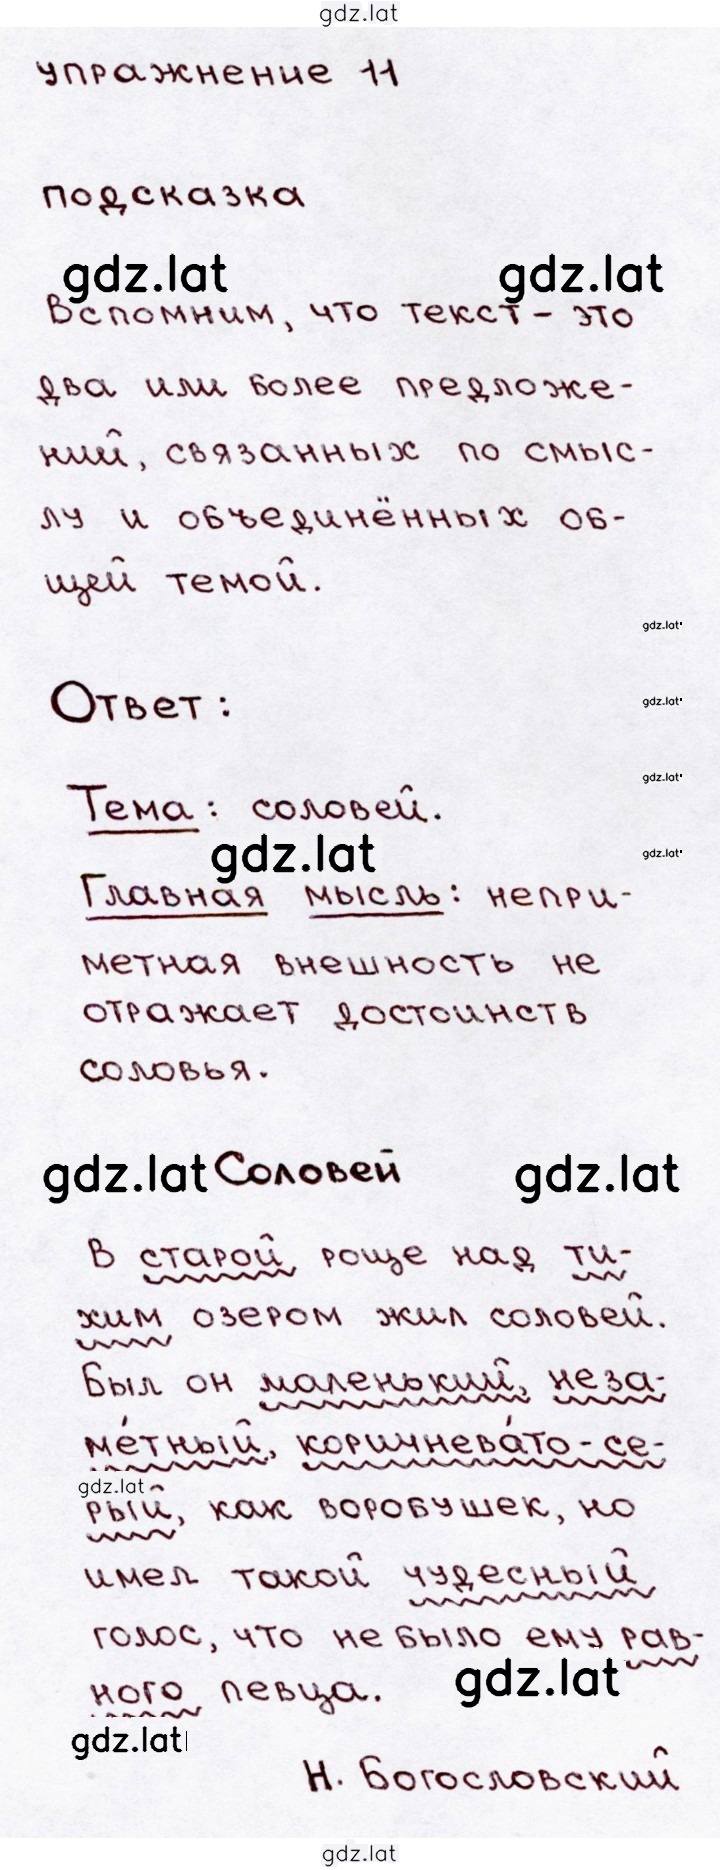 gdz.lat
упражнение 11
подсказка
gdz.lat gdz.lat
Вспомним, что текст - это
два или более предложе-
ний, связанных по смыс-
лу и объединённых об-
щей темой.
gdz.lat
Ответ:
gdz.lat
gdz.lat
Тема: соловей.
gdz.lat
gdz.lat
Главная мысль: непри-
метная внешность не
отражает достоинств
соловья.
gdz.lat Соловей gdz.lat
В старой роще над ти-
хим озером жил соловей.
Был он маленький, неза-
ме́тный, коричнева́то-се-
gdz.lat
рый, как воробушек, но
имел такой чудесный
голос, что не было ему рав-
gdz.lat
ного певца.
gdz.lat
Н. Богословский
gdz.lat